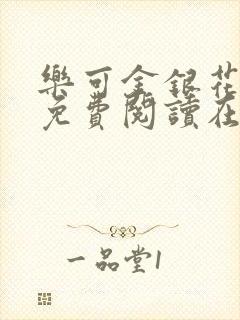 樂可金銀花
免費閱讀在
一品堂1